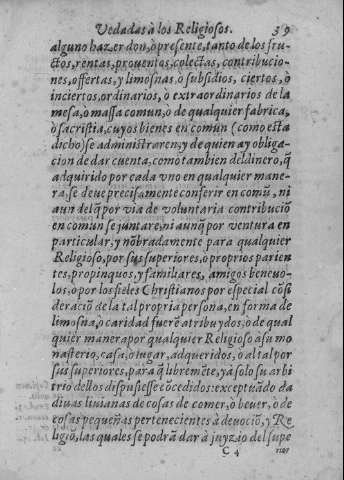 Vedadas à los Religiosos. 39
alguno hazer don, ò presente, tanto de los fru-
ctos, rentas, prouentos, colectas, contribucio-
nes, offertas, y limosnas ò subsidios, ciertos, ò
inciertos, ordinarios, ò extraordinarios de la
mesa, ò massa comun, ò de qualquier fabrica,
ò sacristia, cuyos bienes en comun (como esta
dicho) se administraren, y de quien ay obliga-
cion de dar cuenta, como tambien del dinero, q̃
adquirido por cada vno en qualquier mane-
ra, se deue precisamente conferir en comũ, ni
aun del q̃ por via de voluntaria contribuciõ
en comun se juntare, ni aunq̃ por ventura en
particular, y nõbradamente para qualquier
Religioso, por sus superiores, o proprios parien
tes, propinquos, y familiares, amigos beneuo-
los, o por los fieles Christianos por especial cõsi
deraciõ de la tal propria persona, en forma de
limosna, ò caridad fuerẽ atribuydos, ò de qual
quier manera por qualquier Religioso a su mo
nasterio, casa, o lugar, adqueridos, o al tal por
sus superiores, para q̃ libremẽte, y à solo su arbi
trio dellos dispusiesse cõcedidos: exceptuãdo da
diuas liuianas de cosas de comer, ò beuer, ò de
cosas pequeñas pertenecientes à deuociõ, y Re
ligiõ, las quales se podrã dar à juyzio del supe
C 4 rior